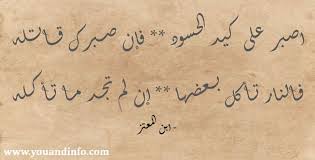 اصبر على كيد الحسود ** فإن صبرك قاتله
فالنار تأكل بعضها ** إن لم تجد ما تأكله
- ابن المعتز
www.youandinfo.com